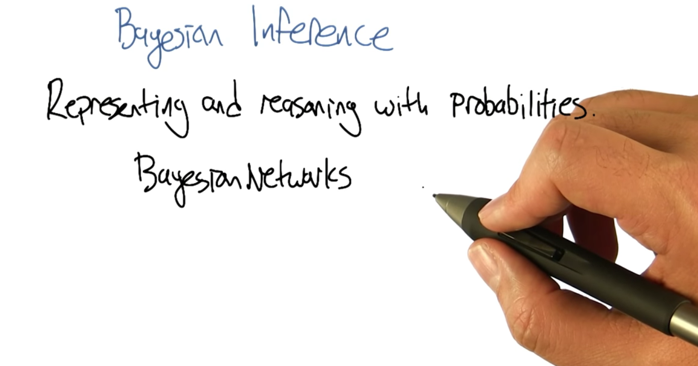 Bayesian Inference
Representing and reasoning with probabilities.
Bayesian Networks